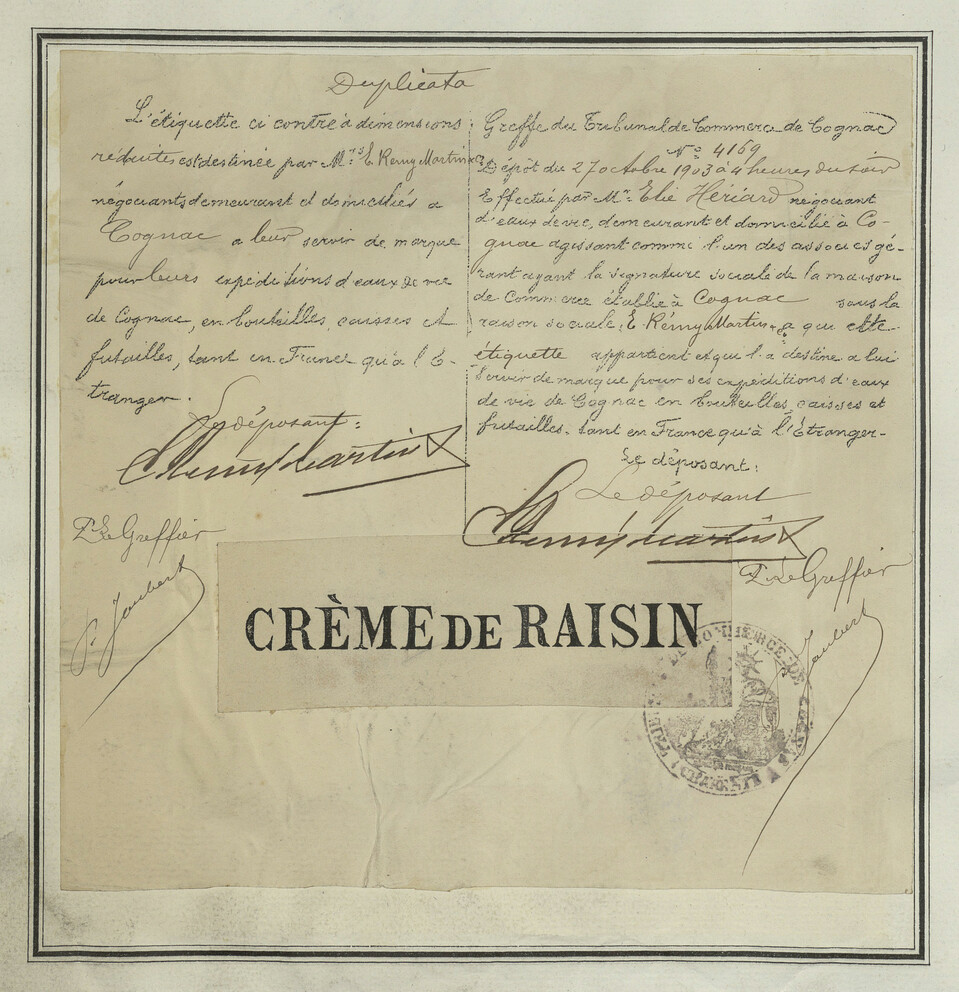 Duplicata
L'étiquette ci contre à dimensions
réduites est destinée par Mrs E. Remy Martin & Co
négociants demeurant et domiciliés a
Cognac a leur servir de marque
pour leurs expéditions d'eaux de vie
de Cognac, en bouteilles, caisses et
futailles, tant en France qu'à l'E-
tranger.
Le déposant:
E Remy Martin & Co
P. Le Greffier
P. Jaubert
Greffe du Tribunal de Commerce de Cognac
No 4169
Dépôt du 27 octobre 1903 à 4 heures du soir
Effectué par Mr. Elie Hériard négociant
d'eaux de vie, demeurant et domicilié à Co-
gnac agissant comme l'un des associés gé-
rant ayant la signature sociale de la maison
de Commerce établie à Cognac sous la
raison sociale: E. Rémy Martin & Co a qui cette
étiquette appartient et qui l'a destine a lui
servir de marque pour ses expéditions d'eaux
de vie de Cognac en bouteilles, caisses et
futailles. tant en France qu'à l'Étranger-
Le déposant:
Le déposant
E Remy Martin & Co
P. Le Greffier
P. Jaubert
CRÈME DE RAISIN
TRIBUNAL DE COMMERCE DE COGNAC (CHARENTE)